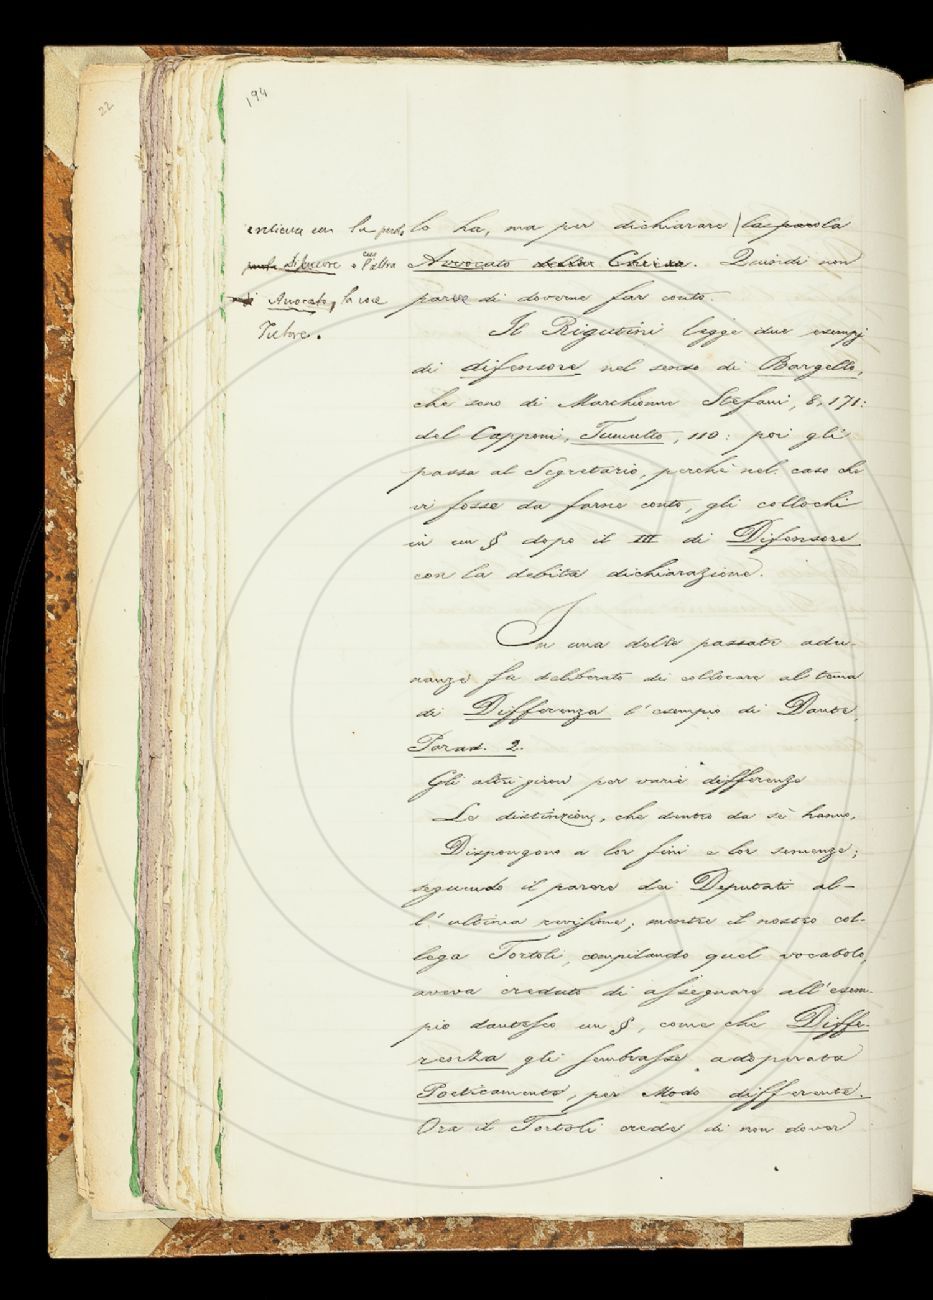 22
194
lo ha, ma per dichiarare la parola
Avvocato della Chiesa. Quindi non
parve di doverne far conto.
insieme con la parola
Difensore e coll'altra
di Avvocato, la voce
Tutore.
Il Rigutini legge due esempj
di difensore nel senso di Bargello,
che sono di Marchionne Stefani, 8, 171:
del Capponi, Tumulto, 110: poi gli
passa al Segretario, perchè nel caso che
vi fosse da farne conto, gli collochi
in un § dopo il III di Difensore
con la debita dichiarazione.
In una delle passate adu-
nanze fu deliberato di collocare al tema
di Differenza l'esempio di Dante,
Parad. 2.
Gli altri giron per varie differenze
Le distinzion, che dentro da sè hanno,
Dispongono a lor fini e lor semenze;
seguendo il parere dei Deputati al-
l'ultima revisione; mentre il nostro col-
lega Tortoli, compilando quel vocabolo,
aveva creduto di assegnare all'esem-
pio dantesco un §, come che Diffe-
renza gli sembrasse adoperata
Poeticamente, per Modo differente.
Ora il Tortoli crede di non dover